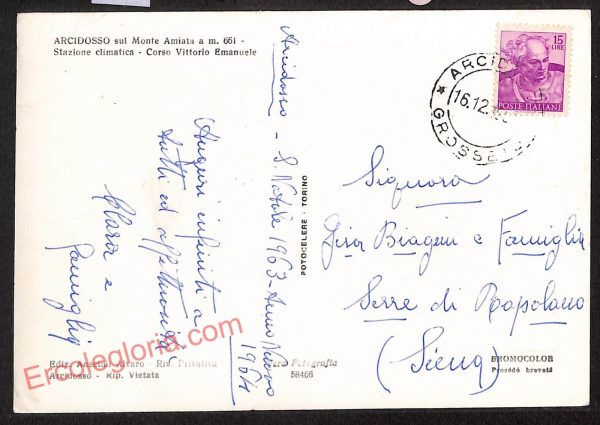 ARCIDOSSO sul Monte Amiata a m. 661 -
Stazione climatica - Corso Vittorio Emanuele
Arcidosso - S. Natale 1963 - Anno Nuovo
1964
Auguri infiniti a
tutti ed affettuosità
Clara e
famiglia
FOTOCELERE - TORINO
15
LIRE
POSTE ITALIANE
ARCID
16.12.
GROSSE
Signora
Gina Biagini e Famiglia
Serre di Rapolano
(Siena)
Ediz. Alvaro - Riv. Privativa
Arcidosso - Rip. Vietata
Vera Fotografia
58466
BROMOCOLOR
Procédé breveté
Ercolegloria.com